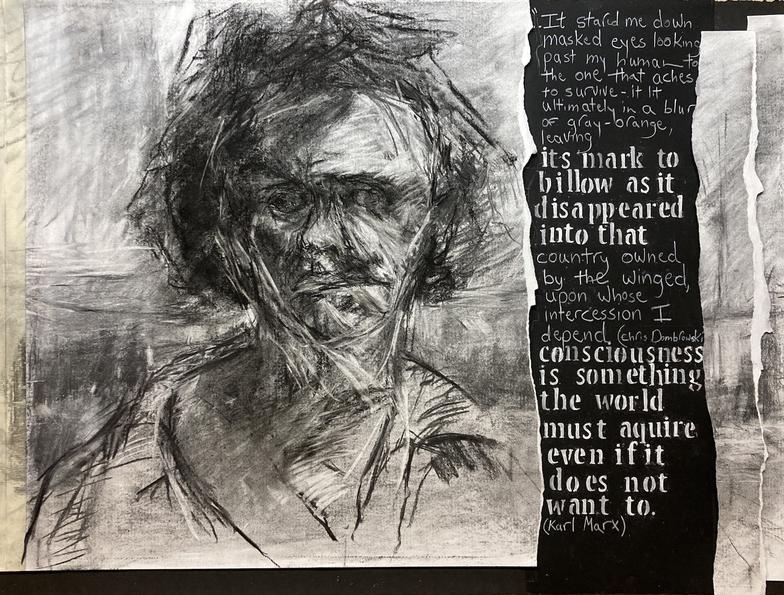 "It stard me down
masked eyes looking
past my human to
the one that aches
to survive - it lt
ultimately in a blur
of gray-orange,
leaving
its mark to
billow as it
disappeared
into that
country owned
by the winged,
upon whose
intercession I
depend. (Chris Dombrowski
consciousness
is something
the world
must aquire
even if it
does not
want to.
(Karl Marx)